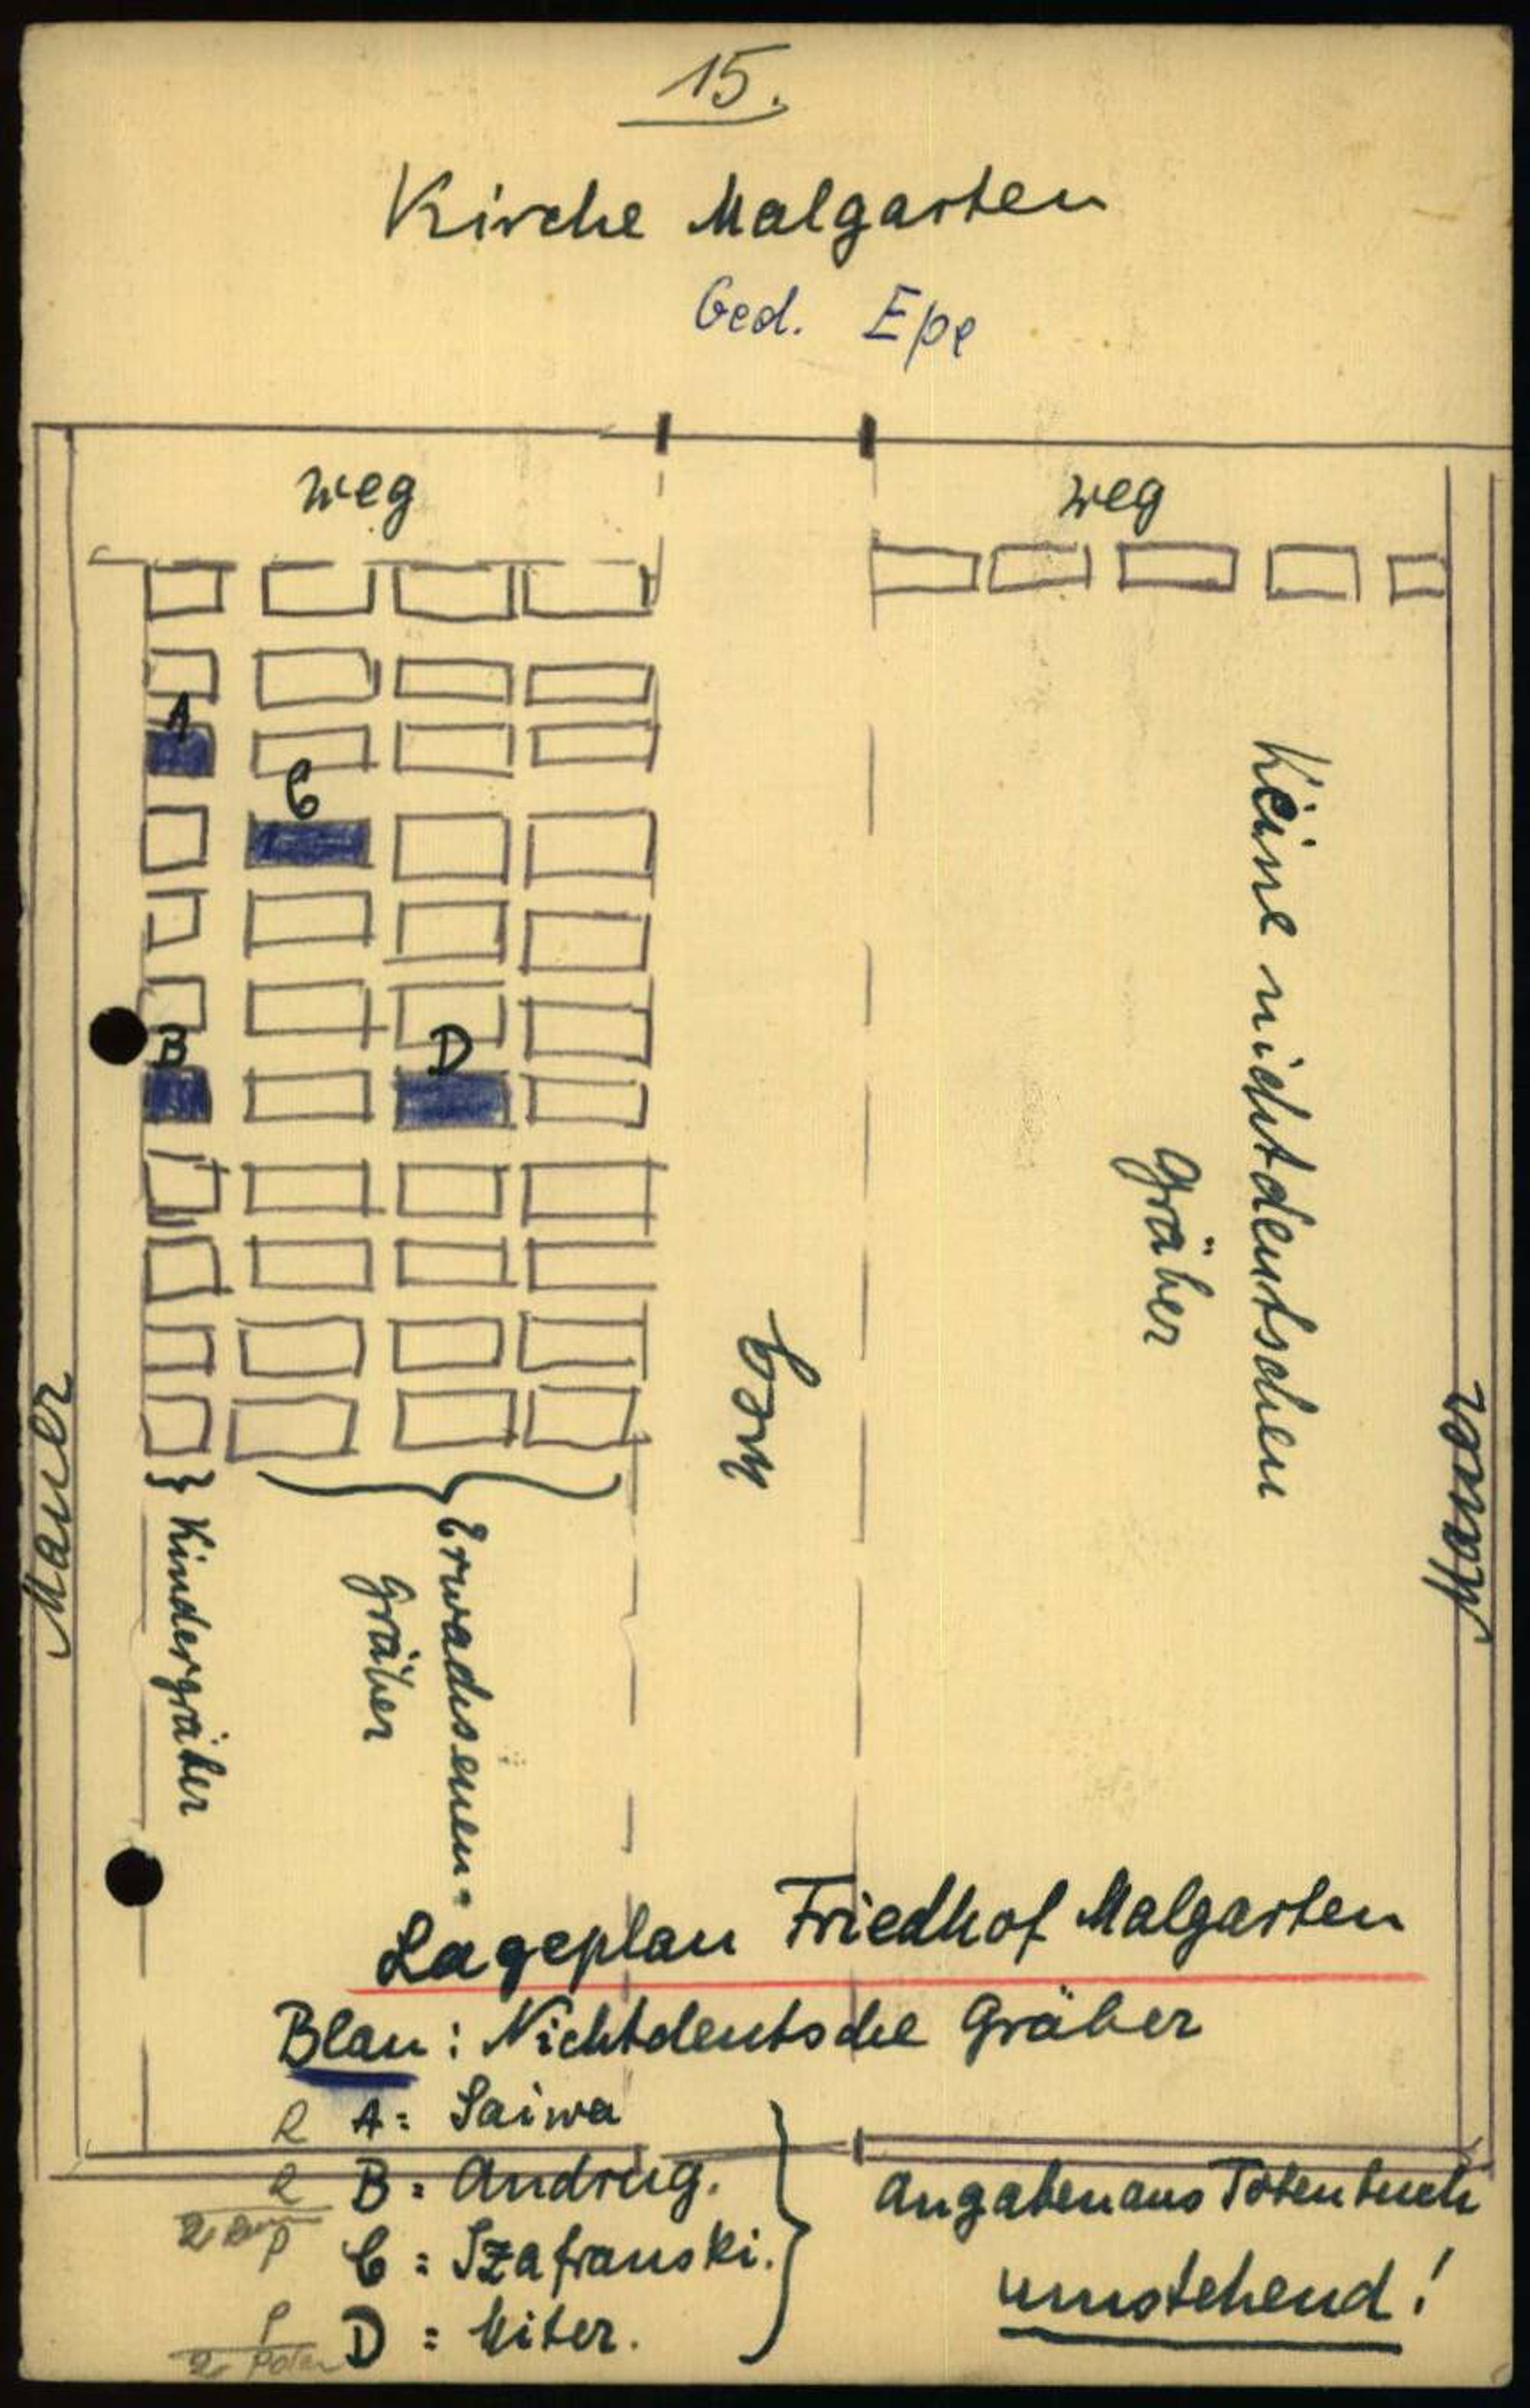 15.
Kirche Malgarten
Ged. Epe
Weg
Weg
A
C
B
D
Keine nichtdeutschen
Gräber
Weg
Mauer
Mauer
Kindergräber
Erwachsenen-
Gräber
Lageplan Friedhof Malgarten
Blau: Nichtdeutsche Gräber
R A= Saiwa
R B= Andrug.
P C = Szafranski.
P D = Miter.
2 Polen
Angaben aus Totenbuch
umstehend!